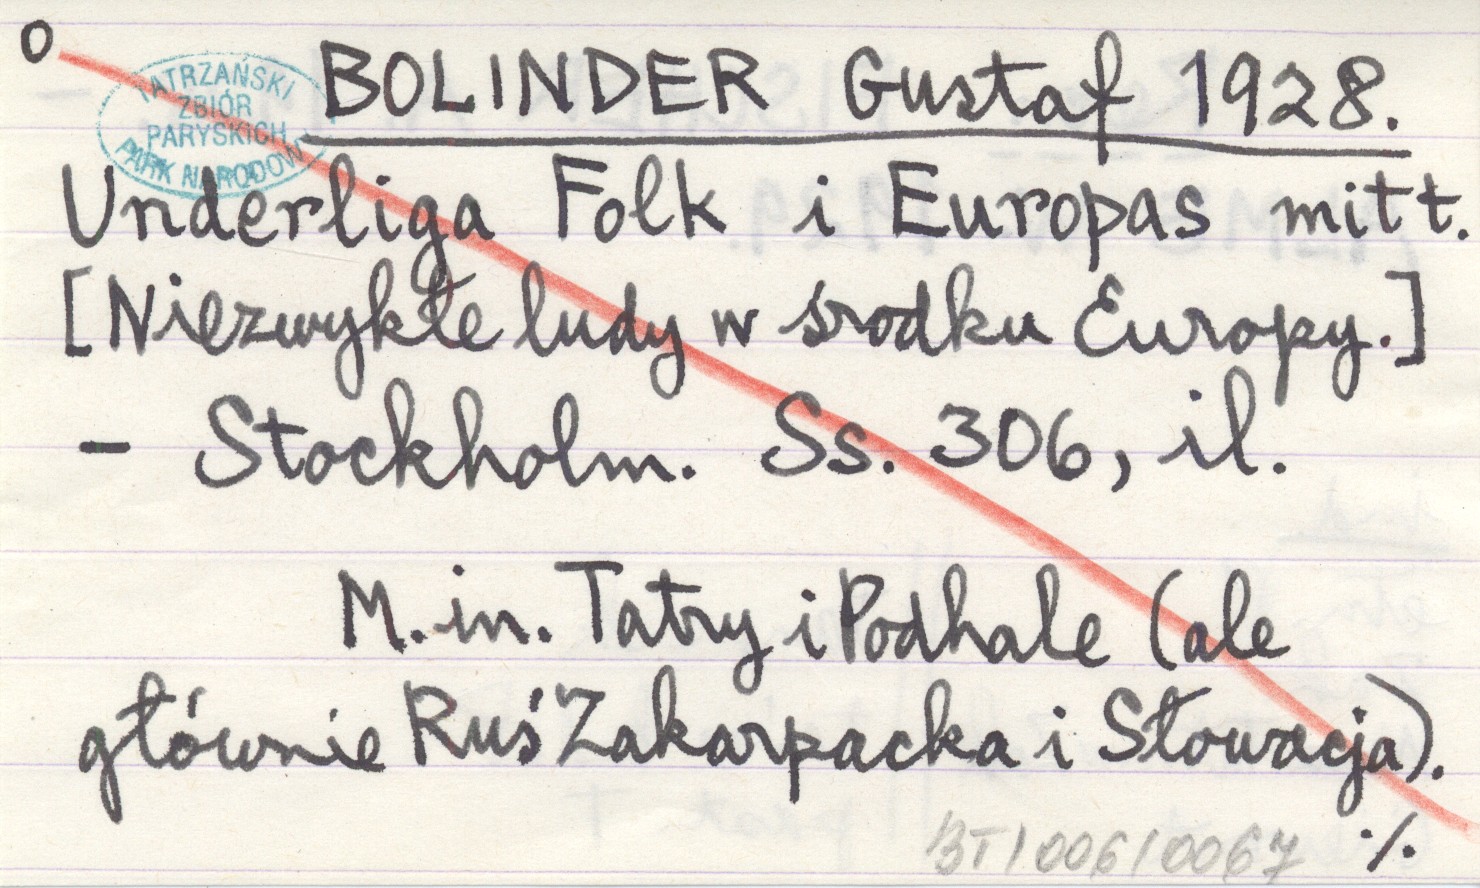 O
TATRZAŃSKI
ZBIÓR
PARYSKICH
PARK NARODOWY
BOLINDER Gustaf 1928.
Underliga Folk i Europas mitt.
[Niezwykłe ludy w środku Europy.]
- Stockholm. Ss. 306, il.
M. in. Tatry i Podhale (ale
głównie Ruś Zakarpacka i Słowacja).
BT/006/0067 ·/.